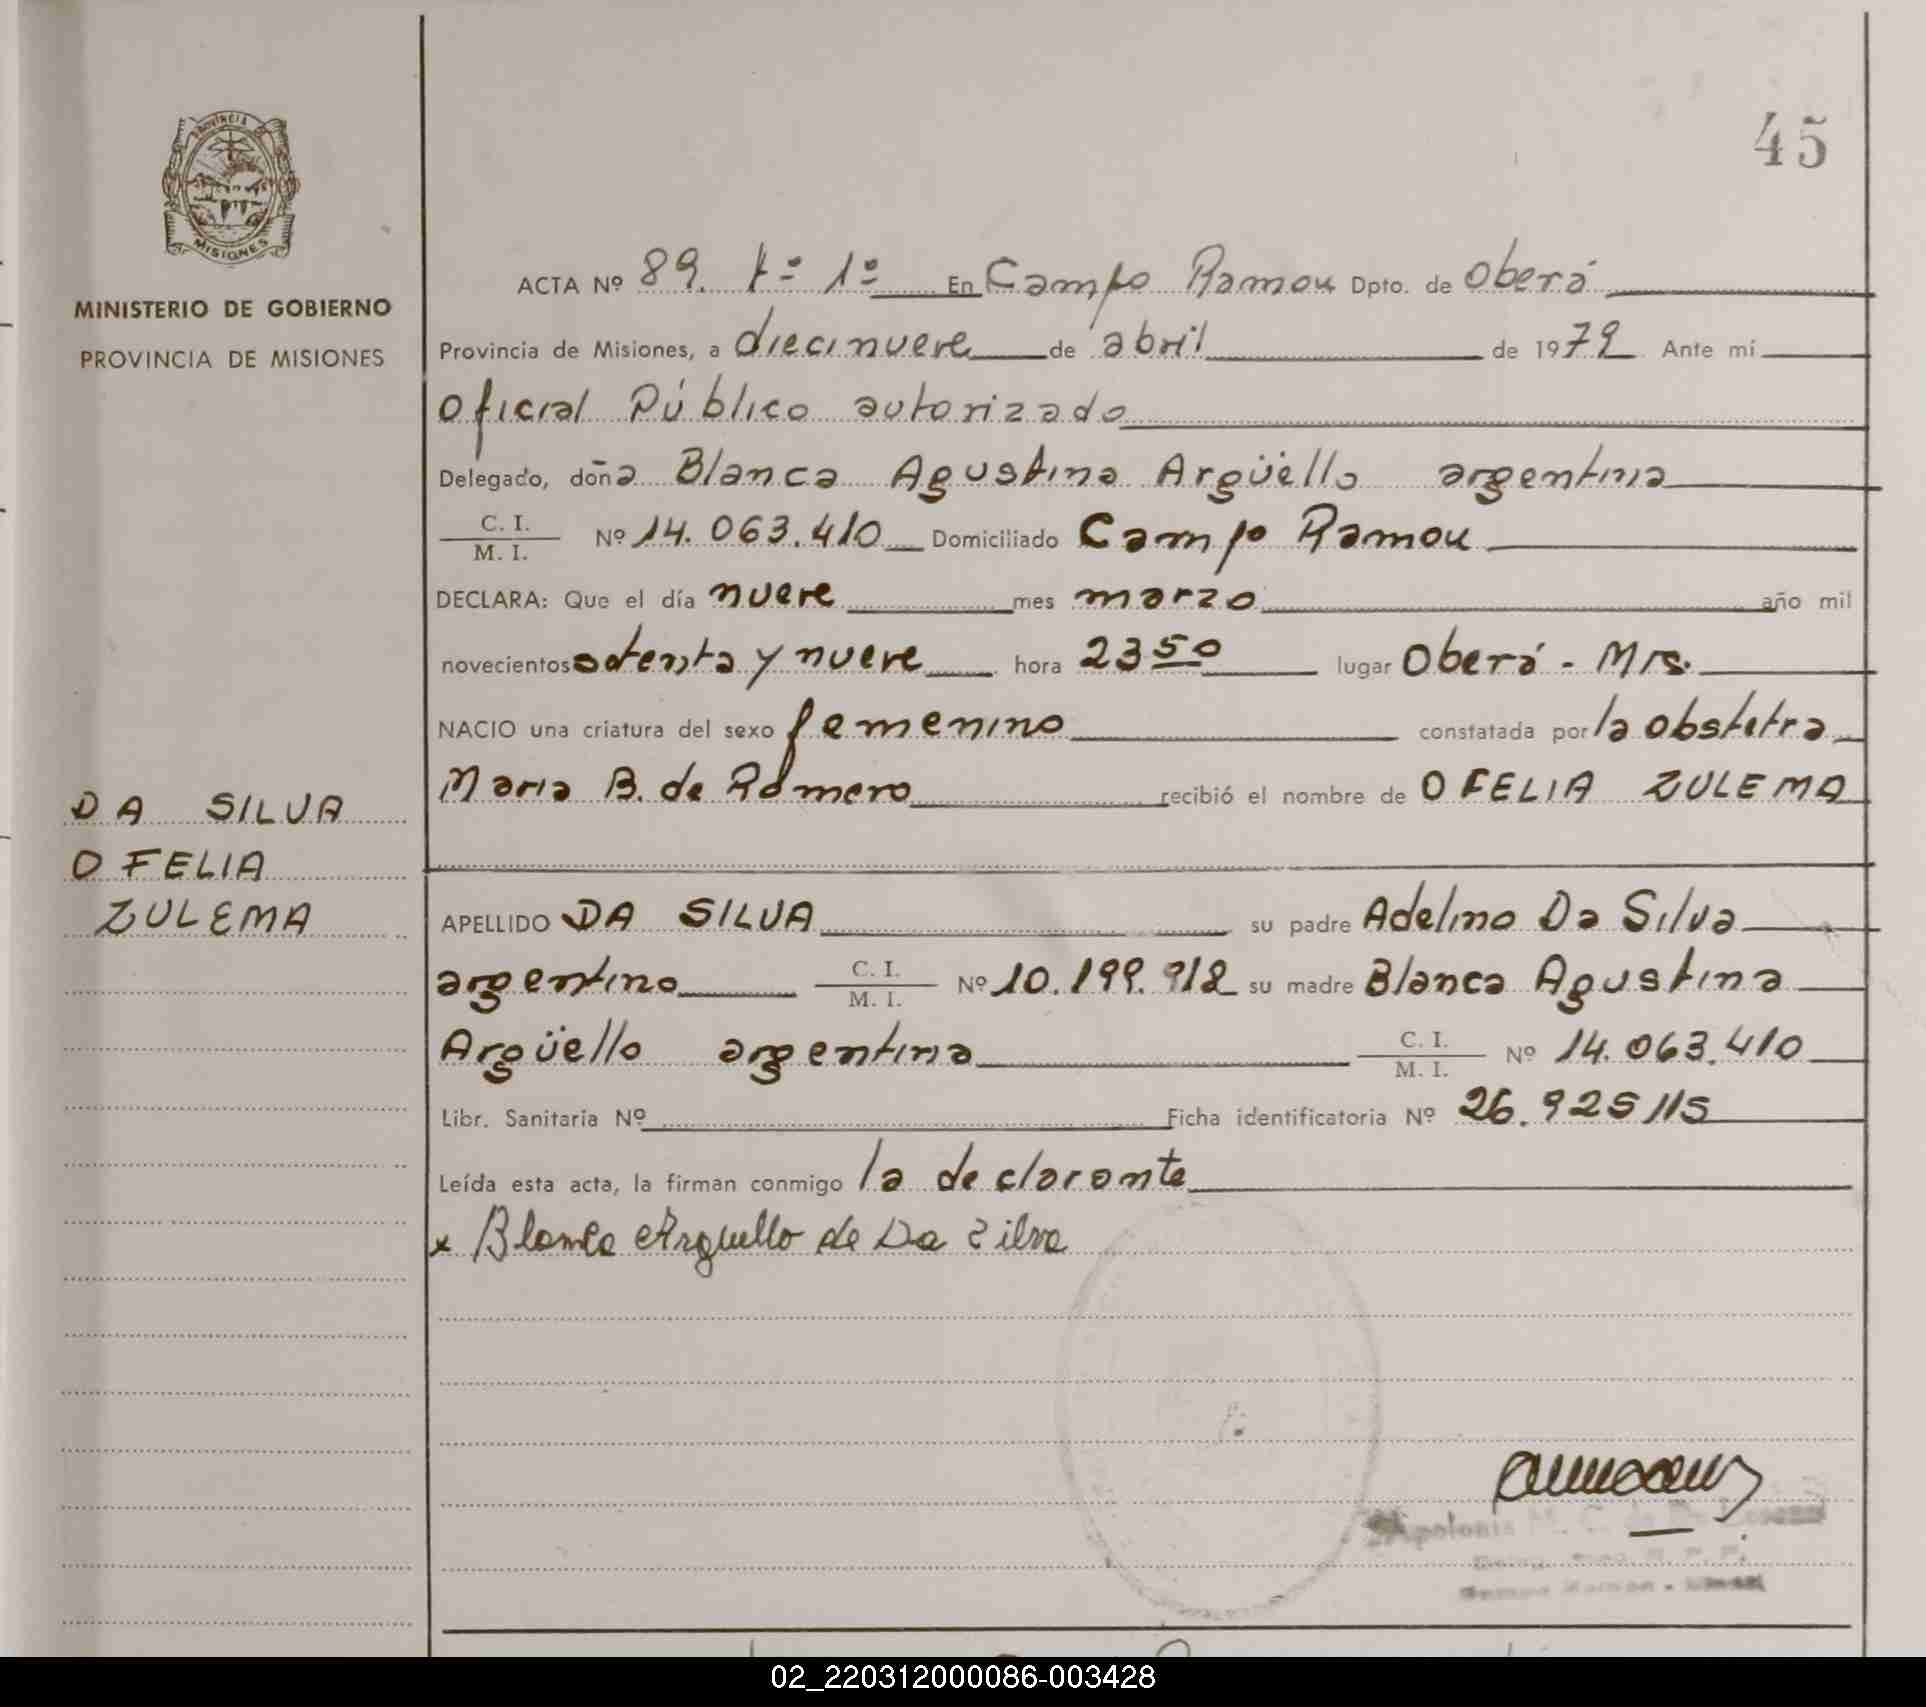 PROVINCIA DE
MISIONES
MINISTERIO DE GOBIERNO
PROVINCIA DE MISIONES
DA SILVA
OFELIA
ZULEMA
45
ACTA Nº 89. tº 1º En Campo Ramon Dpto. de Oberá
Provincia de Misiones, a diecinueve de abril de 1979 Ante mí
Oficial Público autorizado
Delegado, doña Blanca Agustina Argüello argentina
C. I.
M. I.
Nº 14.063.410 Domiciliado Campo Ramon
DECLARA: Que el día nueve mes marzo año mil
novecientos setenta y nueve hora 23 50 lugar Oberá - Mis.
NACIO una criatura del sexo femenino constatada por la obstetra
Maria B. de Romero recibió el nombre de OFELIA ZULEMA
APELLIDO DA SILVA su padre Adelino Da Silva
argentino C. I.
M. I.
Nº 10.199.912 su madre Blanca Agustina
Argüello argentina C. I.
M. I.
Nº 14.063.410
Libr. Sanitaria Nº Ficha identificatoria Nº 26.925115
Leída esta acta, la firman conmigo la declarante
x Blanca Arguello de Da Silva
Apolonia M. C. de
02_220312000086-003428